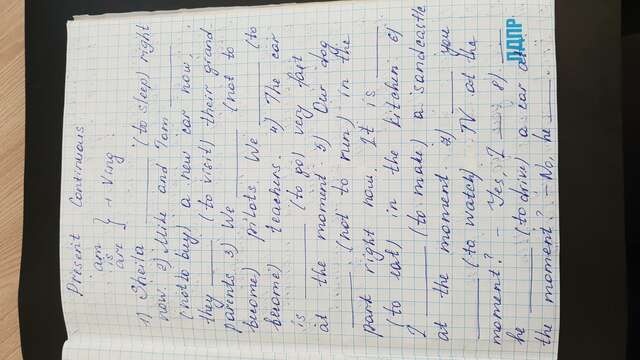 Present Continuous
am
is } + Ving
are
1) Sheila ______ (to sleep) right
now. 2) Mike and Tom ______
(not to buy) a new car now.
they ______ (to visit) their grand-
parents 3) We ______ (not to
become) pilots. We ______ (to
become) teachers. 4) The car
is ______ (to go) very fast
at the moment 5) Our dog
______ (not to run) in the
park right now. It is ______
(to eat) in the kitchen 6)
I ______ (to make) a sandcastle
at the moment. 7) ______ you
______ (to watch) TV at the
moment? - Yes, I ______ 8) ______
he ______ (to drive) a car at
the moment? - No, he ______.
ПДПР